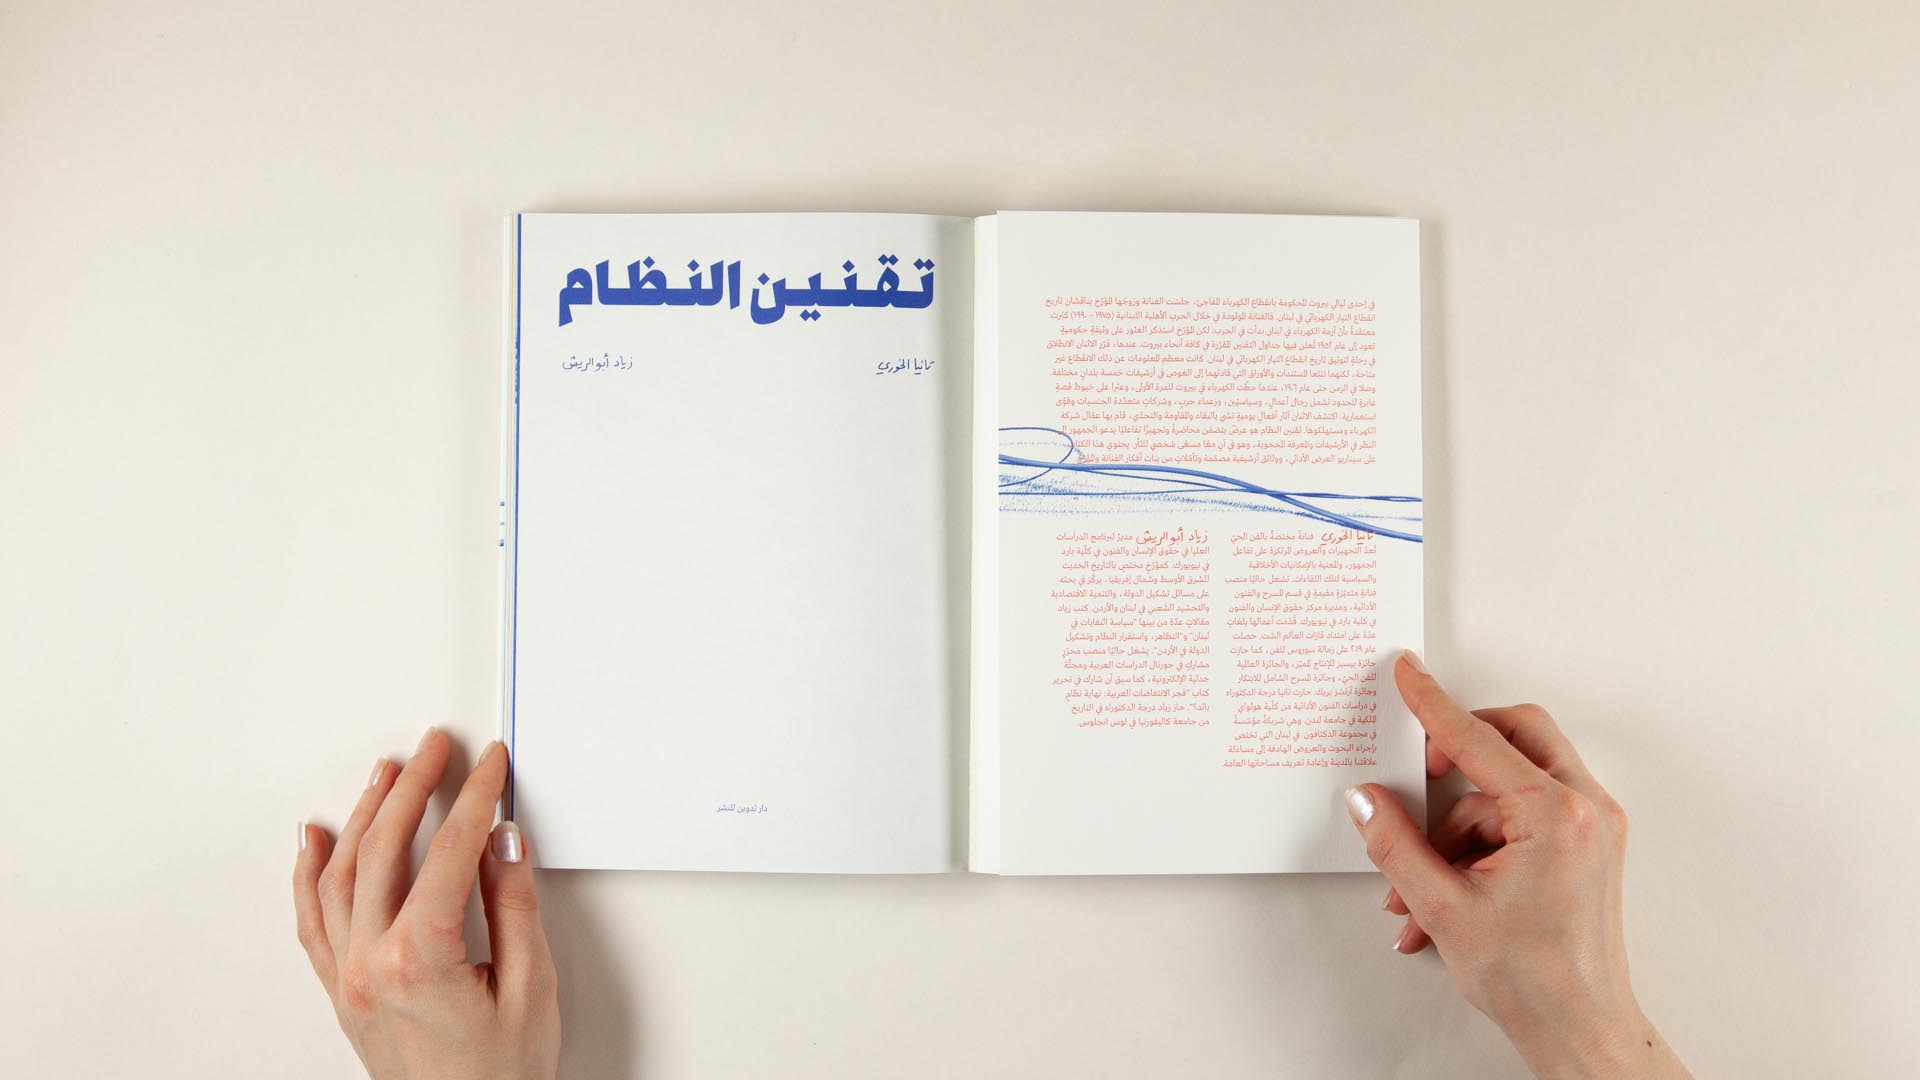 في إحدى ليالي بيروت المحكومة بانقطاع الكهرباء المفاجئ، جلست الفنانة وزوجُها المؤرّخ يناقشان تاريخ
انقطاع التيار الكهربائي في لبنان. فالفنانة المولودة في خلال الحرب الأهلية اللبنانية (١٩٧٥ - ١٩٩٠) كبُرت
معتقدةً بأنّ أزمة الكهرباء في لبنان بدأت في الحرب. لكن المؤرّخ استذكر العثور على وثيقةٍ حكوميةٍ
تعود إلى عام ١٩٥٢ تُعلن فيها جداول التقنين المقرّرة في كافة أنحاء بيروت. عندها، قرّر الاثنان الانطلاق
في رحلةٍ لتوثيق تاريخ انقطاع التيار الكهربائي في لبنان. كانت معظم المعلومات عن ذلك الانقطاع غير
متاحة، لكنهما تتبّعا المستندات والأوراق التي قادتهما إلى الغوص في أرشيفات خمسة بلدانٍ مختلفة.
وصلا في الزمن حتى عام ١٩٠٦، عندما حطّت الكهرباء في بيروت للمرة الأولى، وعثرا على خيوط قصةٍ
عابرةٍ للحدود تشمل رجال أعمالٍ، وسياسيّين، وزعماء حربٍ، وشركاتٍ متعدّدة الجنسيات وقوًى
استعمارية. اكتشف الاثنان آثار أفعالٍ يوميةٍ تشي بالبقاء والمقاومة والتحدّي، قام بها عمّال شركة
الكهرباء ومستهلكوها. تقنين النظام هو عرضٌ يتضمّن محاضرةً وتجهيزًا تفاعليًا يدعو الجمهور إلى
النظر في الأرشيفات والمعرفة المحجوبة، وهو في آنٍ معًا مسعًى شخصي للثأر. يحتوي هذا الكتاب
على سيناريو العرض الأدائي، ووثائق أرشيفية مصمّمة وتأمّلاتٍ من بنات أفكار الفنانة والمؤرّخ.
تانيا الخوري فنانةٌ مختصةٌ بالفن الحيّ
تُعدّ التجهيزات والعروض المرتكزة على تفاعل
الجمهور، والمعنية بالإمكانيات الأخلاقية
والسياسية لتلك اللقاءات. تشغل حاليًا منصب
فنانةٍ متميّزةٍ مقيمةٍ في قسم المسرح والفنون
الأدائية، ومديرة مركز حقوق الإنسان والفنون
في كلية بارد في نيويورك. قُدّمت أعمالها بلغاتٍ
عدّة على امتداد قارّات العالم الستّ. حصلت
عام ٢٠١٩ على زمالة سوروس للفن، كما حازت
جائزة بيسيز للإنتاج المميّز، والجائزة العالمية
للفن الحيّ، وجائزة المسرح الشامل للابتكار
وجائزة آرتشز بريك. حازت تانيا درجة الدكتوراه
في دراسات الفنون الأدائية من كلّية هولواي
الملكية في جامعة لندن. وهي شريكةٌ مؤسّسةٌ
في مجموعة الدكتافون في لبنان التي تختص
بإجراء البحوث والعروض الهادفة إلى مساءلة
علاقتنا بالمدينة وإعادة تعريف مساحاتها العامة.
زياد أبو الريش مديرٌ لبرنامج الدراسات
العليا في حقوق الإنسان والفنون في كلّية بارد
في نيويورك. كمؤرّخٍ مختص بالتاريخ الحديث
للشرق الأوسط وشمال إفريقيا، يركّز في بحثه
على مسائل تشكيل الدولة، والتنمية الاقتصادية
والتحشيد الشعبي في لبنان والأردن. كتب زياد
مقالاتٍ عدّة من بينها "سياسة النفايات في
لبنان" و"التظاهر، واستقرار النظام وتشكيل
الدولة في الأردن". يشغل حاليًا منصب محرّرٍ
مشاركٍ في جورنال الدراسات العربية ومجلّة
جدلية الإلكترونية، كما سبق أن شارك في تحرير
كتاب "فجر الانتفاضات العربية: نهاية نظامٍ
بائد؟". حاز زياد درجة الدكتوراه في التاريخ
من جامعة كاليفورنيا في لوس انجلوس.
تقنين النظام
تانيا الخوري
زياد أبو الريش
دار تدوين للنشر